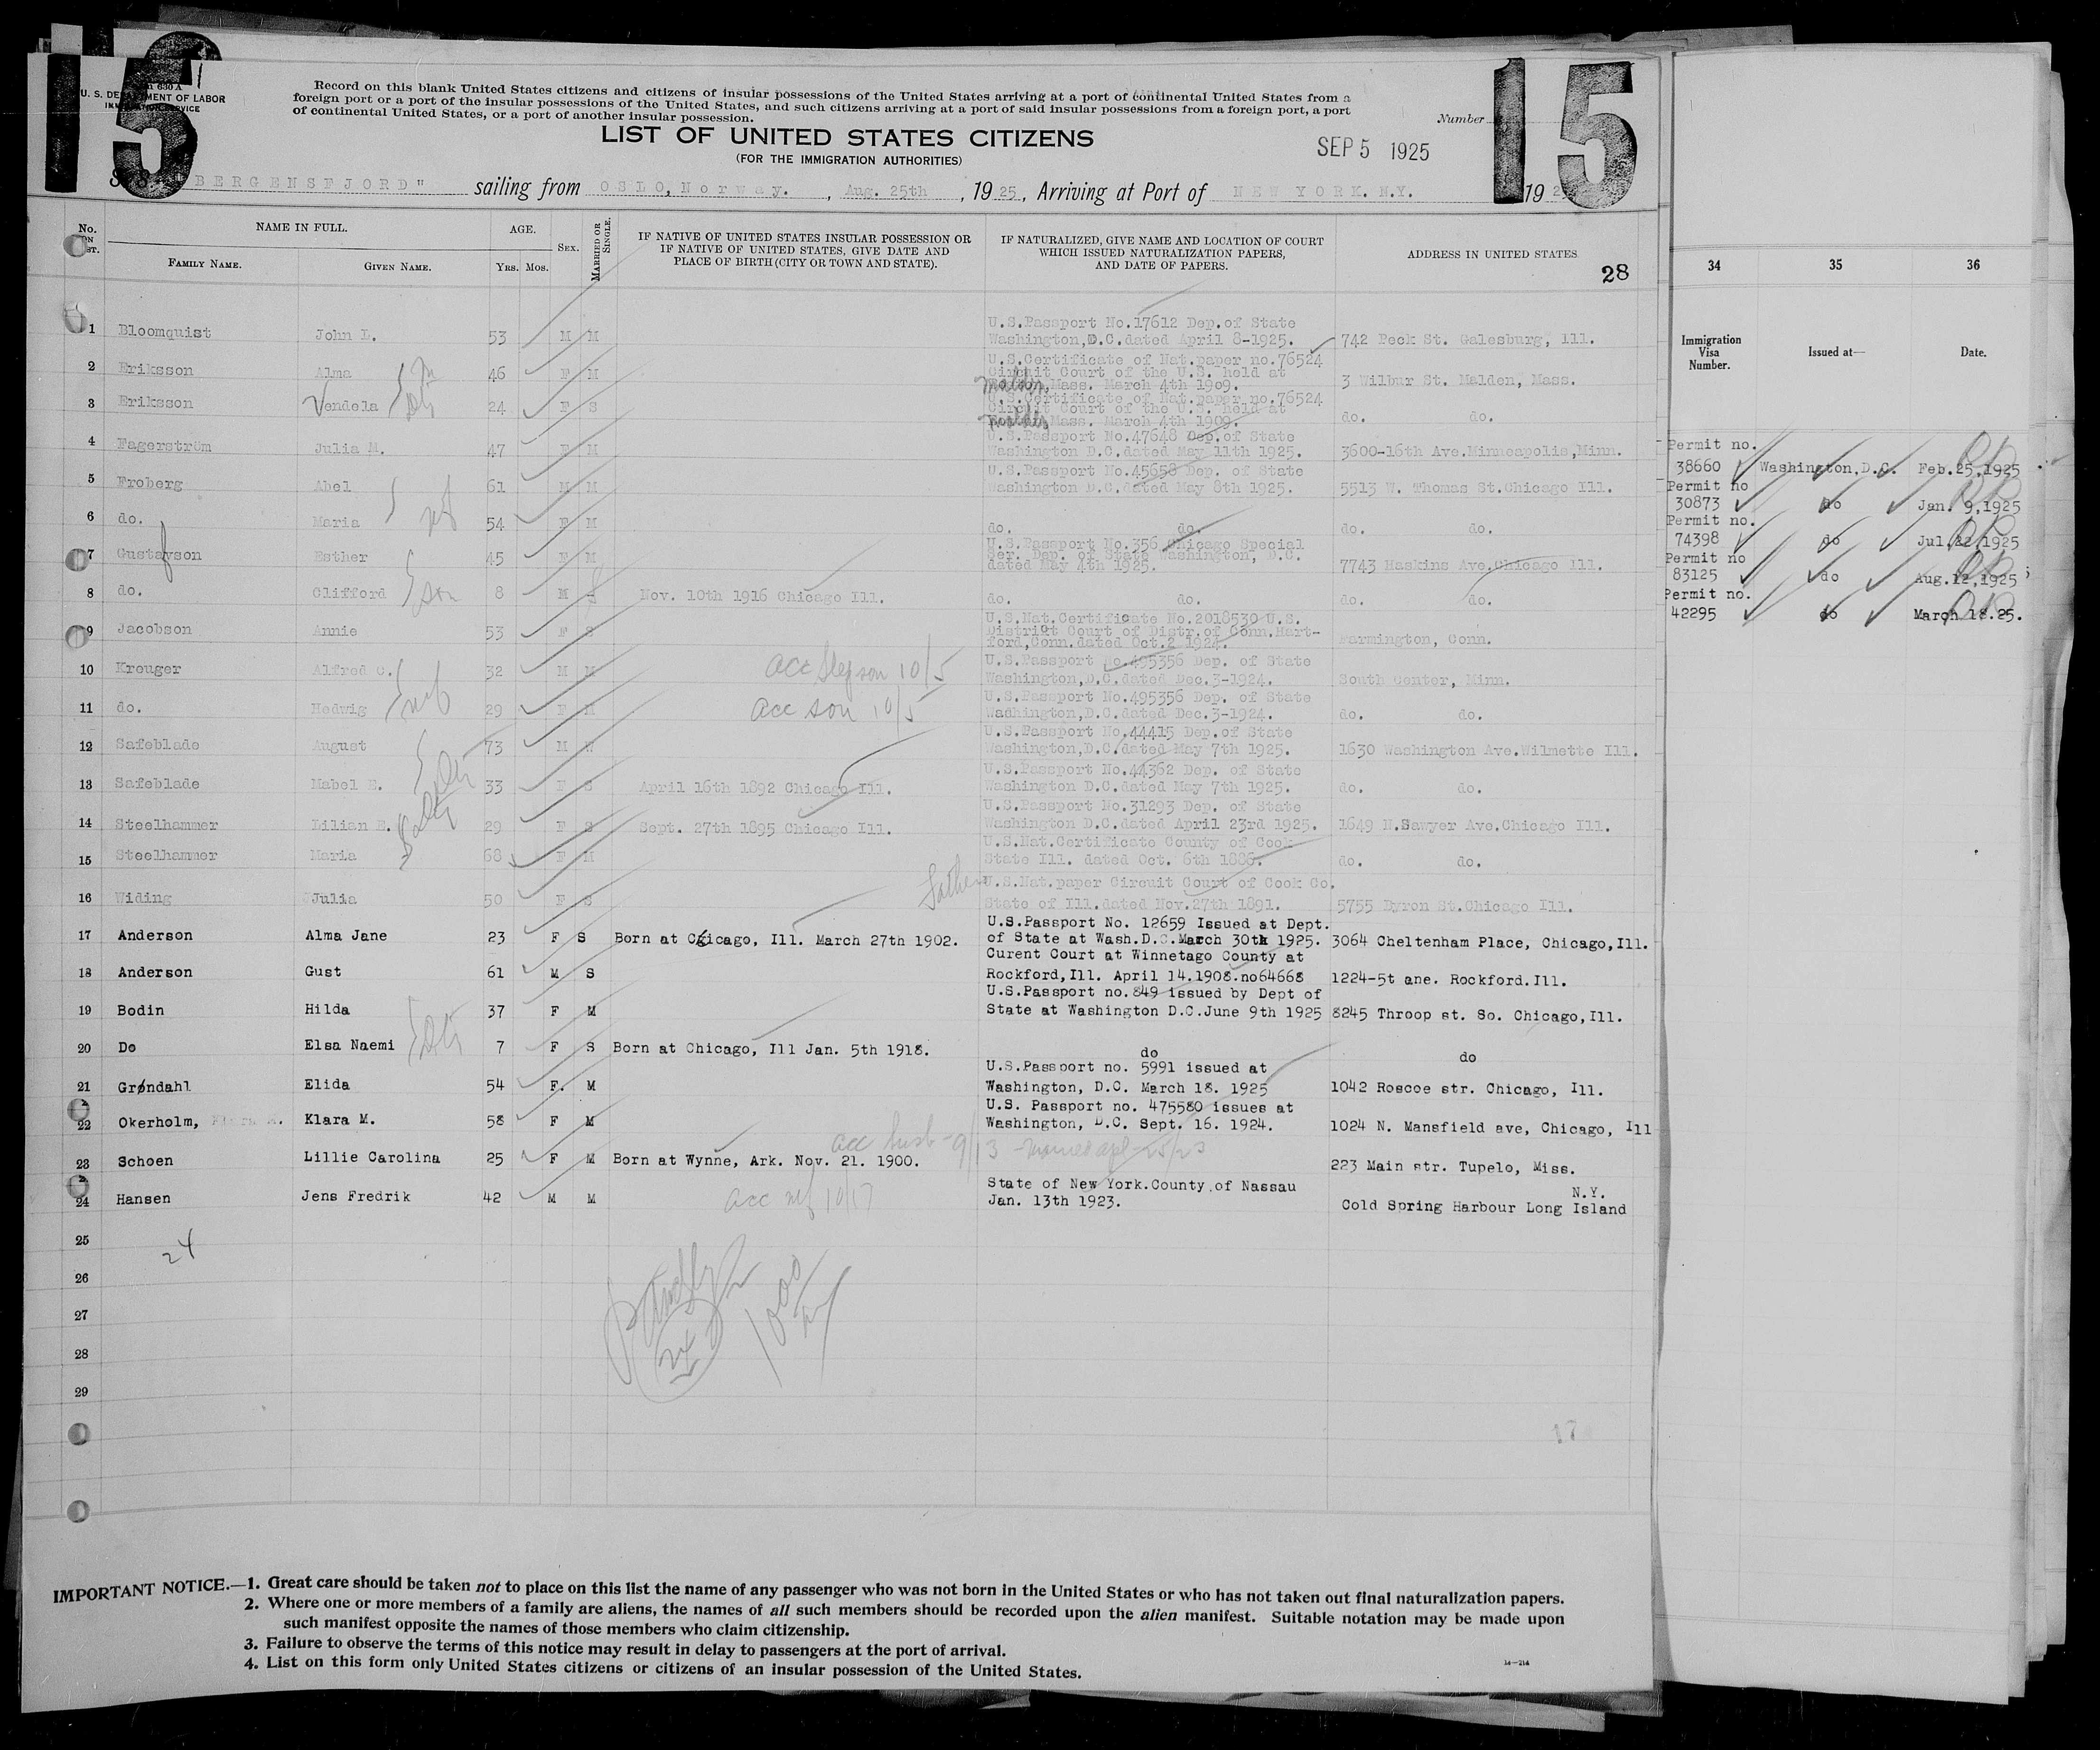 15
15
Form 630 A
U. S. DEPARTMENT OF LABOR
IMMIGRATION SERVICE
Record on this blank United States citizens and citizens of insular possessions of the United States arriving at a port of continental United States from a
foreign port or a port of the insular possessions of the United States, and such citizens arriving at a port of said insular possessions from a foreign port, a port
of continental United States, or a port of another insular possession.
Number
LIST OF UNITED STATES CITIZENS
(FOR THE IMMIGRATION AUTHORITIES)
SEP 5 1925
BERGENSFJORD" sailing from OSLO, Norway. , Aug. 25th , 1925, Arriving at Port of NEW YORK. N.Y. 192
No. ON LIST. NAME IN FULL. AGE. Sex. MARRIED OR SINGLE. IF NATIVE OF UNITED STATES INSULAR POSSESSION OR IF NATIVE OF UNITED STATES, GIVE DATE AND PLACE OF BIRTH (CITY OR TOWN AND STATE). IF NATURALIZED, GIVE NAME AND LOCATION OF COURT WHICH ISSUED NATURALIZATION PAPERS, AND DATE OF PAPERS. ADDRESS IN UNITED STATES
FAMILY NAME. GIVEN NAME. Yrs. Mos.
28
U.S.Passport No.17612 Dep.of State
1 Bloomquist John L. 53 M M Washington,D.C.dated April 8-1925. 742 Peck St. Galesburg, Ill.
U.S.Certificate of Nat.paper no.76524
2 Eriksson Alma 46 F M Circuit Court of the U.S. held at
Boston,Mass. March 4th 1909. 3 Wilbur St. Malden, Mass.
U.S.Certificate of Nat.paper no.76524
3 Eriksson Vendela 24 F S Circuit Court of the U.S. held at
Mass. March 4th 1909. do. do.
U.S.Passport No.47648 Dep.of State
4 Fagerström Julia M. 47 F M Washington D.C.dated May 11th 1925. 3600-16th Ave.Minneapolis,Minn.
U.S.Passport No.45658 Dep. of State
5 Froberg Abel 61 M M Washington D.C.dated May 8th 1925. 5513 W. Thomas St.Chicago Ill.
6 do. Maria wf 54 F M do. do. do. do.
U.S.Passport No.356 Chicago Special
7 Gustafson Esther 45 F M Ser. Dep. of State Washington, D.C.
dated May 4th 1925. 7743 Haskins Ave.Chicago Ill.
8 do. Clifford son 8 M S Nov. 10th 1916 Chicago Ill. do. do. do. do.
U.S.Nat.Certificate No.2018530 U.S.
9 Jacobson Annie 53 F S District Court of Distr.of Conn.Hart-
ford,Conn.dated Oct.2 1924. Farmington, Conn.
U.S.Passport No.495356 Dep. of State
10 Kreuger Alfred C. 32 M M acc Stepson 10/5 Washington,D.C.dated Dec.3-1924. South Center, Minn.
U.S.Passport No.495356 Dep. of State
11 do. Hedwig wf 29 F M acc son 10/5 Washington,D.C.dated Dec.3-1924. do. do.
U.S.Passport No.44415 Dep.of State
12 Safeblade August 73 M W Washington,D.C.dated May 7th 1925. 1630 Washington Ave.Wilmette Ill.
U.S.Passport No.44362 Dep. of State
13 Safeblade Mabel E. 33 F S April 16th 1892 Chicago Ill. Washington D.C.dated May 7th 1925. do. do.
U.S.Passport No.31293 Dep. of State
14 Steelhammer Lilian E. 29 F S Sept. 27th 1895 Chicago Ill. Washington D.C.dated April 23rd 1925. 1649 N.Sawyer Ave.Chicago Ill.
U.S.Nat.Certificate County of Cook
15 Steelhammer Maria 68 F M State Ill. dated Oct. 6th 1886. do. do.
Father U.S.Nat.paper Circuit Court of Cook Co.
16 Widing Julia 50 F S State of Ill.dated Nov.27th 1891. 5755 Byron St.Chicago Ill.
U.S.Passport No. 12659 Issued at Dept.
17 Anderson Alma Jane 23 F S Born at Chicago, Ill. March 27th 1902. of State at Wash.D.C.March 30th 1925. 3064 Cheltenham Place, Chicago,Ill.
Curent Court at Winnetago County at
18 Anderson Gust 61 M S Rockford,Ill. April 14.1908.no64668 1224-5t ane. Rockford.Ill.
U.S.Passport no.849 issued by Dept of
19 Bodin Hilda 37 F M State at Washington D.C.June 9th 1925 8245 Throop st. So. Chicago,Ill.
20 Do Elsa Naemi 7 F S Born at Chicago, Ill Jan. 5th 1918. do do
U.S.Passport no. 5991 issued at
21 Grøndahl Elida 54 F. M Washington, D.C. March 18. 1925 1042 Roscoe str. Chicago, Ill.
U.S. Passport no. 475580 issues at
22 Okerholm, Klara M. 58 F M Washington, D.C. Sept. 16. 1924. 1024 N. Mansfield ave, Chicago, Ill
acc husb - 9/13 - married apl 25/23
23 Schoen Lillie Carolina 25 F M Born at Wynne, Ark. Nov. 21. 1900. 223 Main str. Tupelo, Miss.
State of New York.County.of Nassau N.Y.
24 Hansen Jens Fredrik 42 M M acc wf 10/17 Jan. 13th 1923. Cold Spring Harbour Long Island
25
24
26
27
28
24
29
17
IMPORTANT NOTICE.—1. Great care should be taken not to place on this list the name of any passenger who was not born in the United States or who has not taken out final naturalization papers.
2. Where one or more members of a family are aliens, the names of all such members should be recorded upon the alien manifest. Suitable notation may be made upon
such manifest opposite the names of those members who claim citizenship.
3. Failure to observe the terms of this notice may result in delay to passengers at the port of arrival.
4. List on this form only United States citizens or citizens of an insular possession of the United States.
14—214
34 35 36
Immigration Visa Number. Issued at— Date.
Permit no.
38660 Washington,D.C. Feb.25,1925
Permit no
30873 do Jan. 9,1925
Permit no.
74398 do Jul.22,1925
Permit no
83125 do Aug.12,1925
Permit no.
42295 do March 18.25.